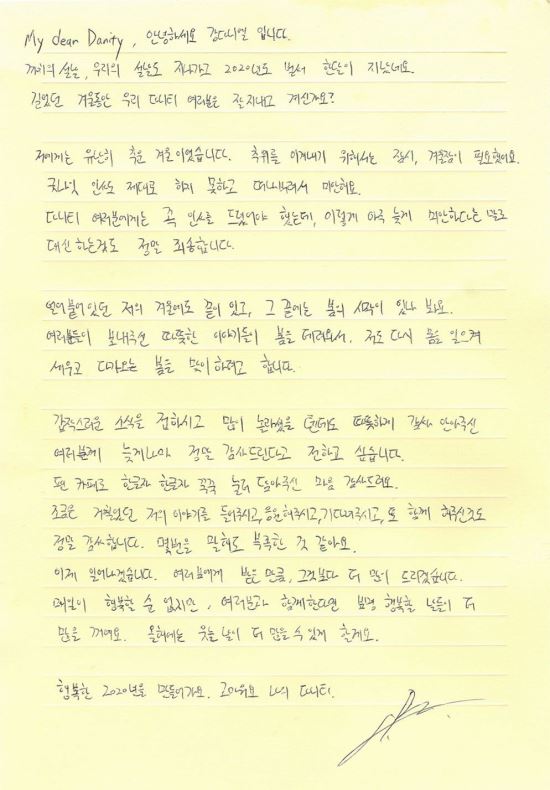 My dear Danity, 안녕하세요 강다니엘 입니다.
까치의 설날, 우리의 설날도 지나가고 2020년도 벌써 한달이 지났네요.
길었던 겨울동안 우리 다니티 여러분은 잘 지내고 계신가요?
저에게는 유난히 추운 겨울이었습니다. 추위를 이겨내기 위해서는 잠시, 겨울잠이 필요했어요.
굿나잇 인사도 제대로 하지 못하고 떠나버려서 미안해요.
다니티 여러분에게는 꼭 인사를 드렸어야 했는데, 이렇게 아주 늦게 미안하다는 말로
대신 하는것도 정말 죄송합니다.
얼어붙어 있던 저의 겨울에도 끝이 있고, 그 끝에는 봄의 시작이 있나 봐요.
여러분들이 보내주신 따뜻한 이야기들이 봄을 데려와서, 저도 다시 몸을 일으켜
세우고 다가오는 봄을 맞이하려고 합니다.
갑작스러운 소식을 접하시고 많이 놀라셨을 텐데도 따뜻하게 감싸 안아주신
여러분께 늦게나마 정말 감사드린다고 전하고 싶습니다.
팬 카페로 한글자 한글자 꾹꾹 눌러 담아주신 마음 감사드려요.
조금은 거칠었던 저의 이야기를 들어주시고, 응원해주시고, 기다려주시고, 또 함께 해주신것도
정말 감사합니다. 몇번을 말해도 부족한 것 같아요.
이제 일어나겠습니다. 여러분에게 받은 만큼, 그것보다 더 많이 드리겠습니다.
매일이 행복할 순 없지만, 여러분과 함께한다면 분명 행복할 날들이 더
많을 꺼에요. 올해에는 웃는 날이 더 많을 수 있게 할게요.
행복한 2020년을 만들어가요. 고마워요 나의 다니티.